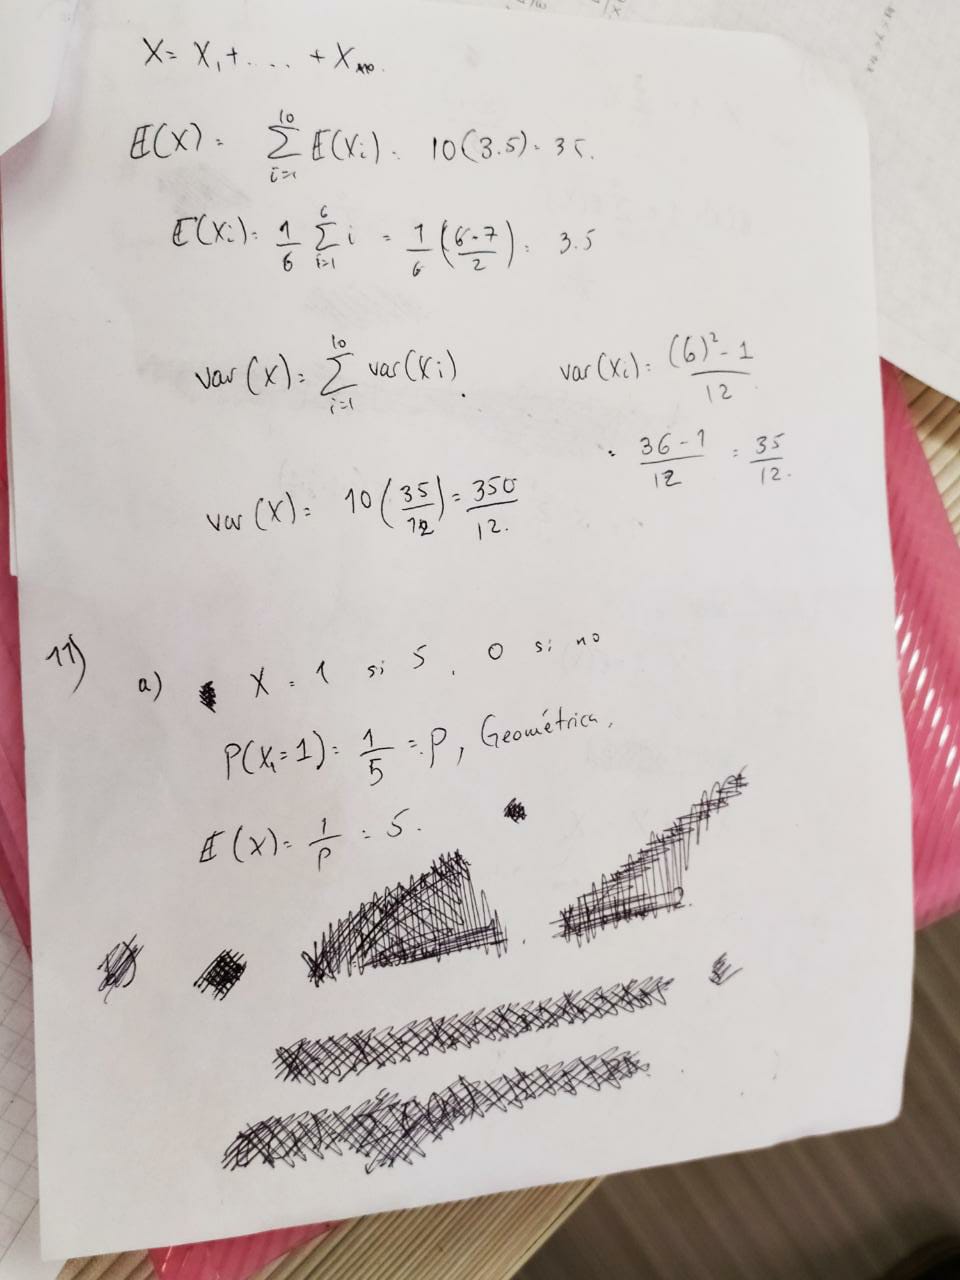 X = X₁ + .... + X₁₀.
E(X) = ∑_{i=1}^{10} E(Xi) = 10(3.5) = 35.
E(Xi) = 1/6 ∑_{i=1}^{6} i = 1/6 (6·7/2) = 3.5
var(X) = ∑_{i=1}^{10} var(Xi). var(Xi) = (6)² - 1 / 12
= 36 - 1 / 12 = 35/12.
var(X) = 10 (35/12) = 350/12.
11)
a) X = 1 si 5, 0 si no
P(X=1) = 1/5 = p, Geométrica.
E(X) = 1/p = 5.